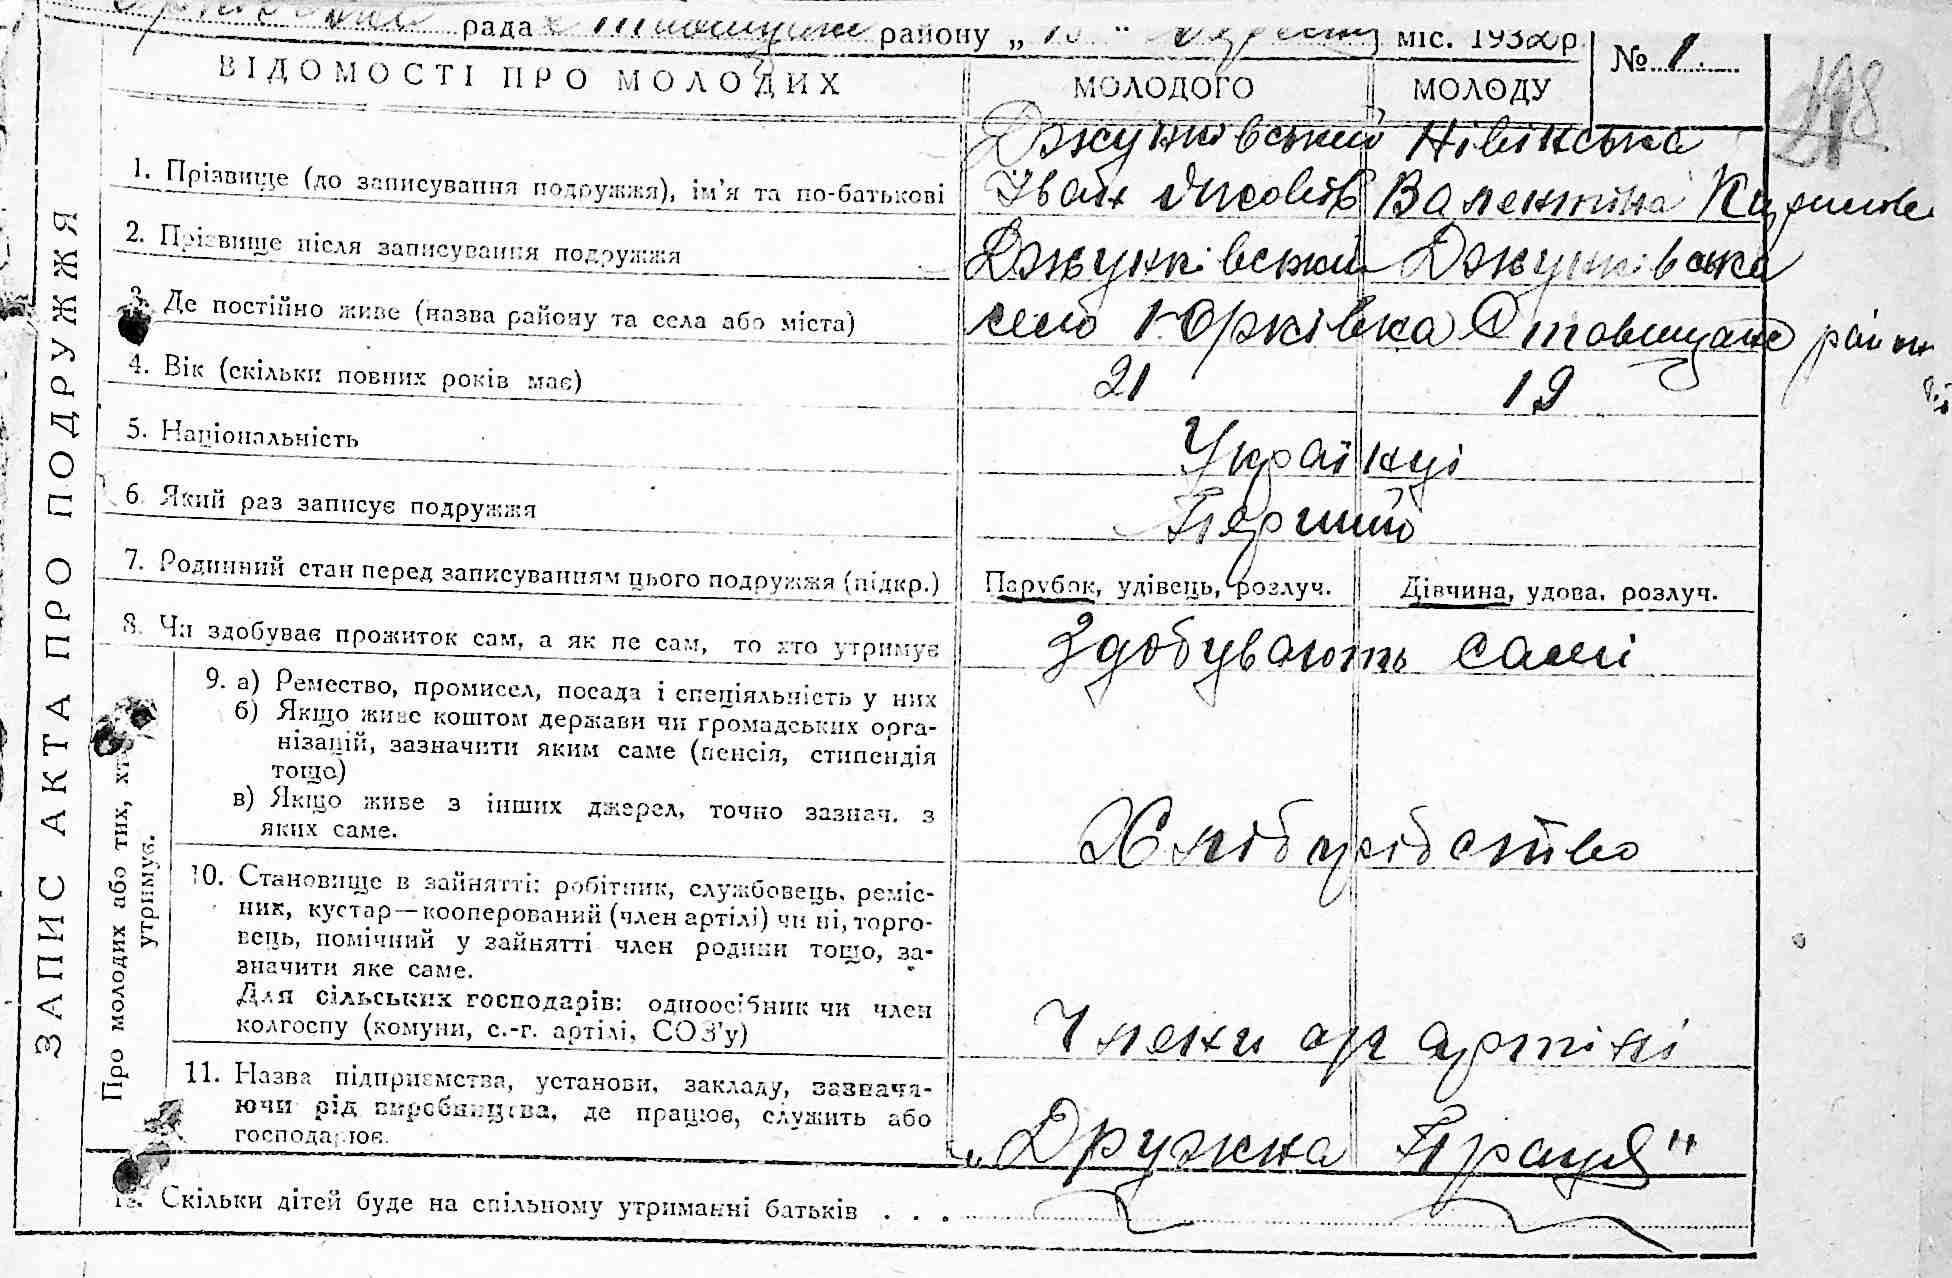 рада району „ 15 " міс. 1932 р.
№ 1.
198
ВІДОМОСТІ ПРО МОЛОДИХ
МОЛОДОГО
МОЛОДУ
ЗАПИС АКТА ПРО ПОДРУЖЖЯ
1. Прізвище (до записування подружжя), ім'я та по-батькові
Джунківський Нівінська
Іван Яковів Валентина
2. Прізвище після записування подружжя
Джунківський Джунківська
3. Де постійно живе (назва району та села або міста)
село Юрківка Ставищане район
4. Вік (скільки повних років має)
21 19
5. Національність
Українці
6. Який раз записує подружжя
Перший
7. Родинний стан перед записуванням цього подружжя (підкр.)
Парубок, удівець, розлуч. Дівчина, удова, розлуч.
8. Чи здобуває прожиток сам, а як не сам, то хто утримує
Здобувають самі
Про молодих або тих, хт
утримує.
9. а) Ремество, промисел, посада і спеціяльність у них
б) Якщо живе коштом держави чи громадських орга-
нізацій, зазначити яким саме (пенсія, стипендія
тощо)
в) Якщо живе з інших джерел, точно зазнач. з
яких саме.
Хліборобство
10. Становище в зайнятті: робітник, службовець, реміс-
ник, кустар—кооперований (член артілі) чи ні, торго-
вець, помічний у зайнятті член родини тощо, за-
значити яке саме.
Для сільських господарів: одноосібник чи член
колгоспу (комуни, с.-г. артілі, СОЗ'у)
Члени артілі
11. Назва підприємства, установи, закладу, зазнача-
ючи рід виробництва, де працює, служить або
господарює.
„Дружна Праця"
12. Скільки дітей буде на спільному утриманні батьків . . .